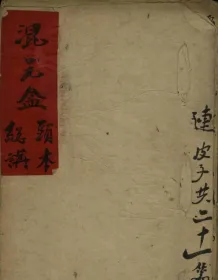 混元盒
頭本
總講
連皮子共二十一